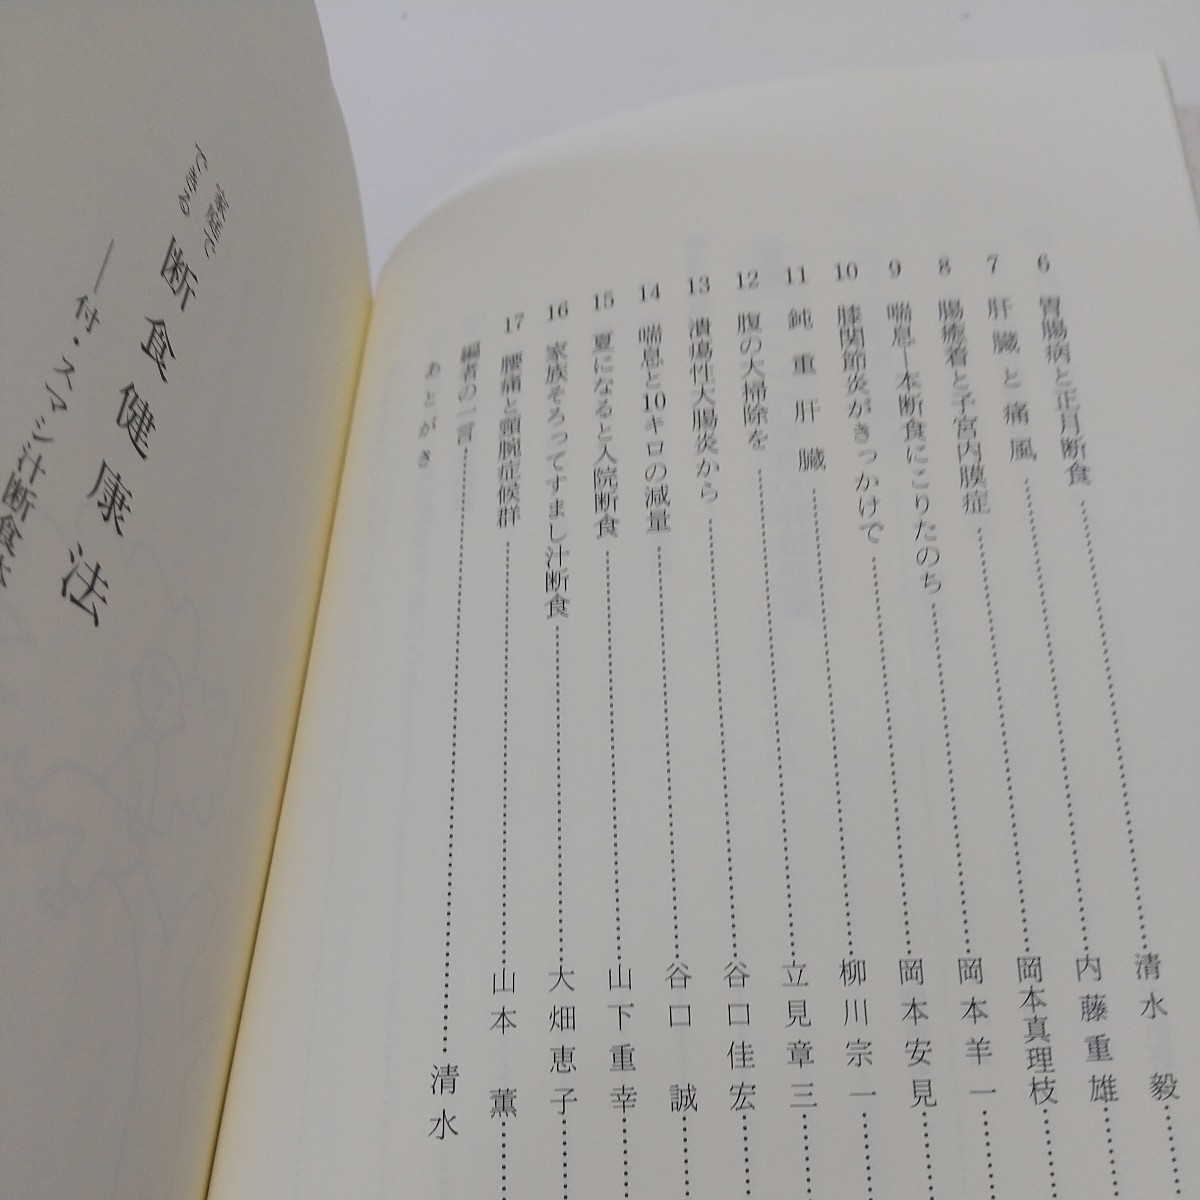 6 胃腸病と正月断食……清水 毅
7 肝臓と痛風……内藤重雄……
8 腸癒着と子宮内膜症……岡本真理枝……
9 喘息―本断食にこりたのち……岡本羊一……
10 膝関節炎がきっかけで……岡本安見……
11 鈍重肝臓……柳川宗一……
12 腹の大掃除を……立見章三……
13 潰瘍性大腸炎から……谷口佳宏……
14 喘息と10キロの減量……谷口 誠……
15 夏になると入院断食……山下重幸……
16 家族そろってすまし汁断食……大畑恵子……
17 腰痛と頸腕症候群……山本 薫……
編者の一言……清水
あとがき
家庭で
できる
断食健康法
――付・スマシ汁断食体